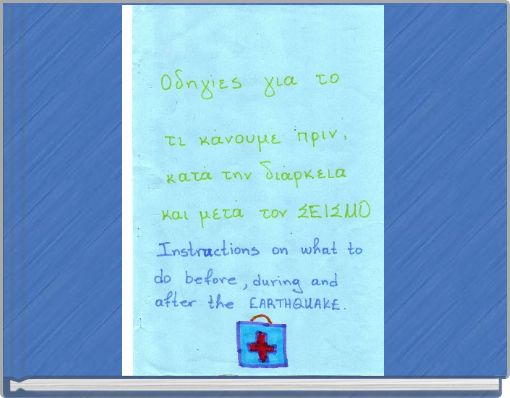 Οδηγίες για το
τι κάνουμε πριν,
κατά την διάρκεια
και μετά τον ΣΕΙΣΜΟ
Instructions on what to
do before, during and
after the EARTHQUAKE.